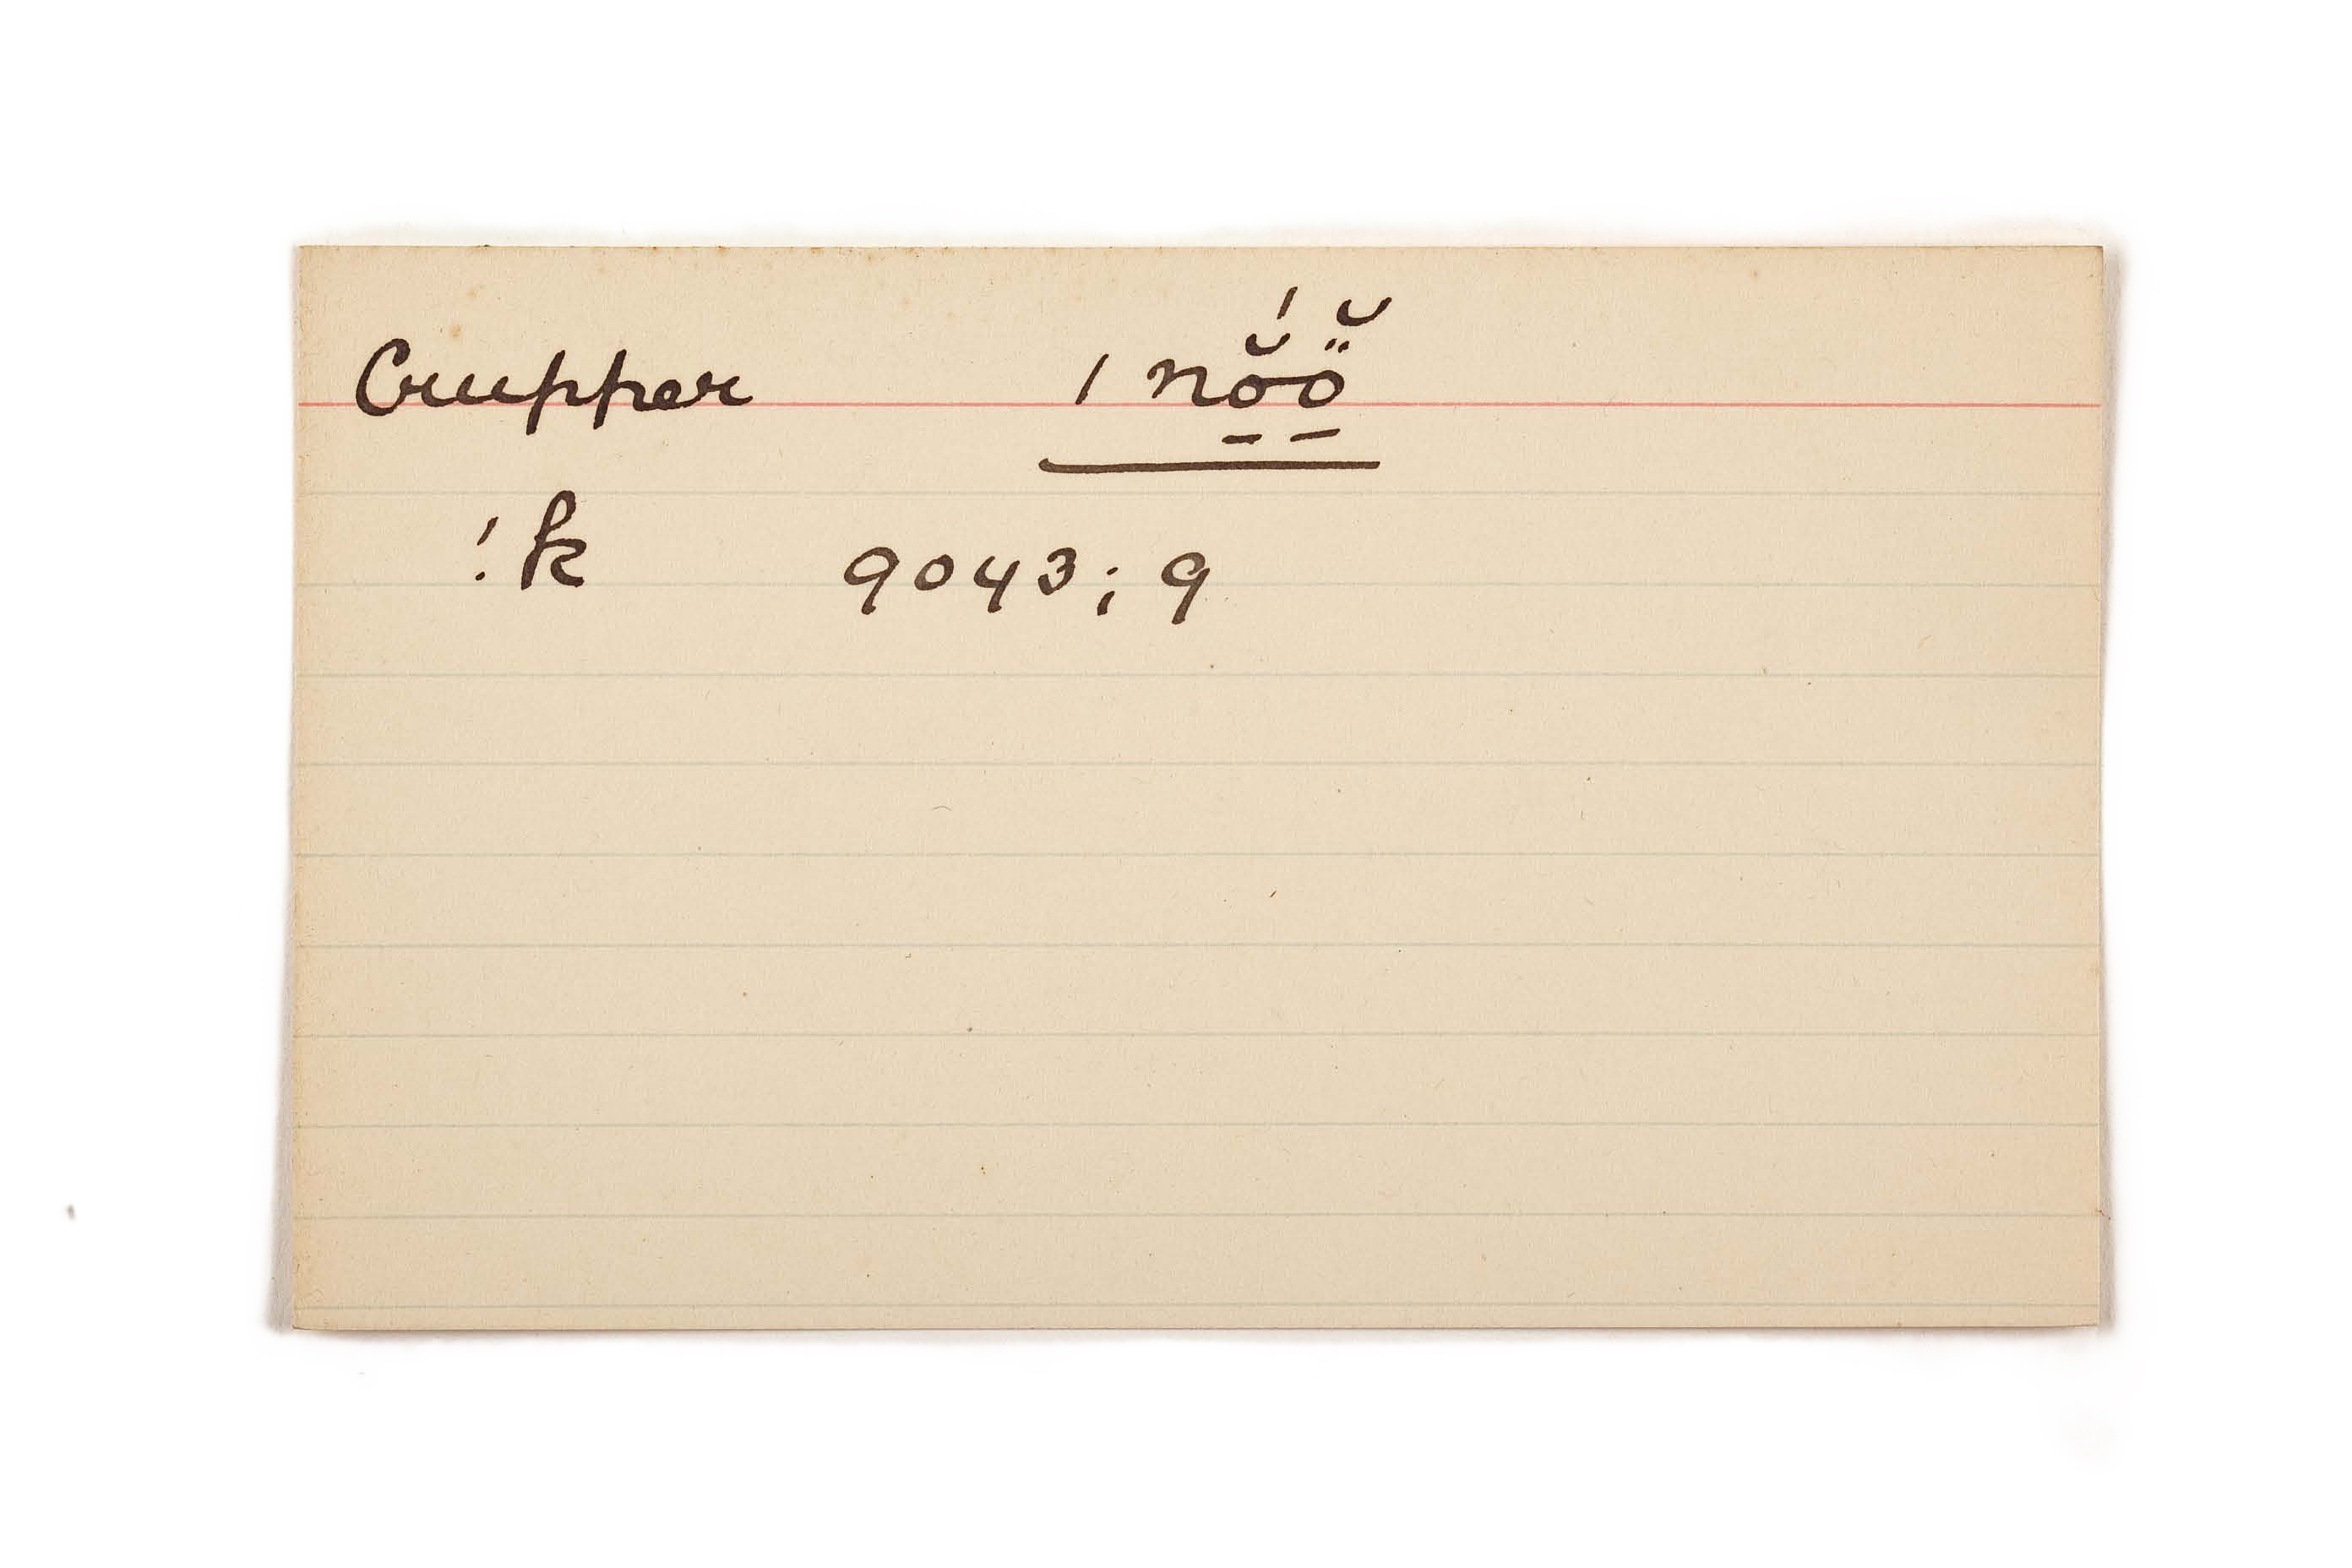 Crupper ǀnŏ̠́ö̠̆
!k 9043; 9